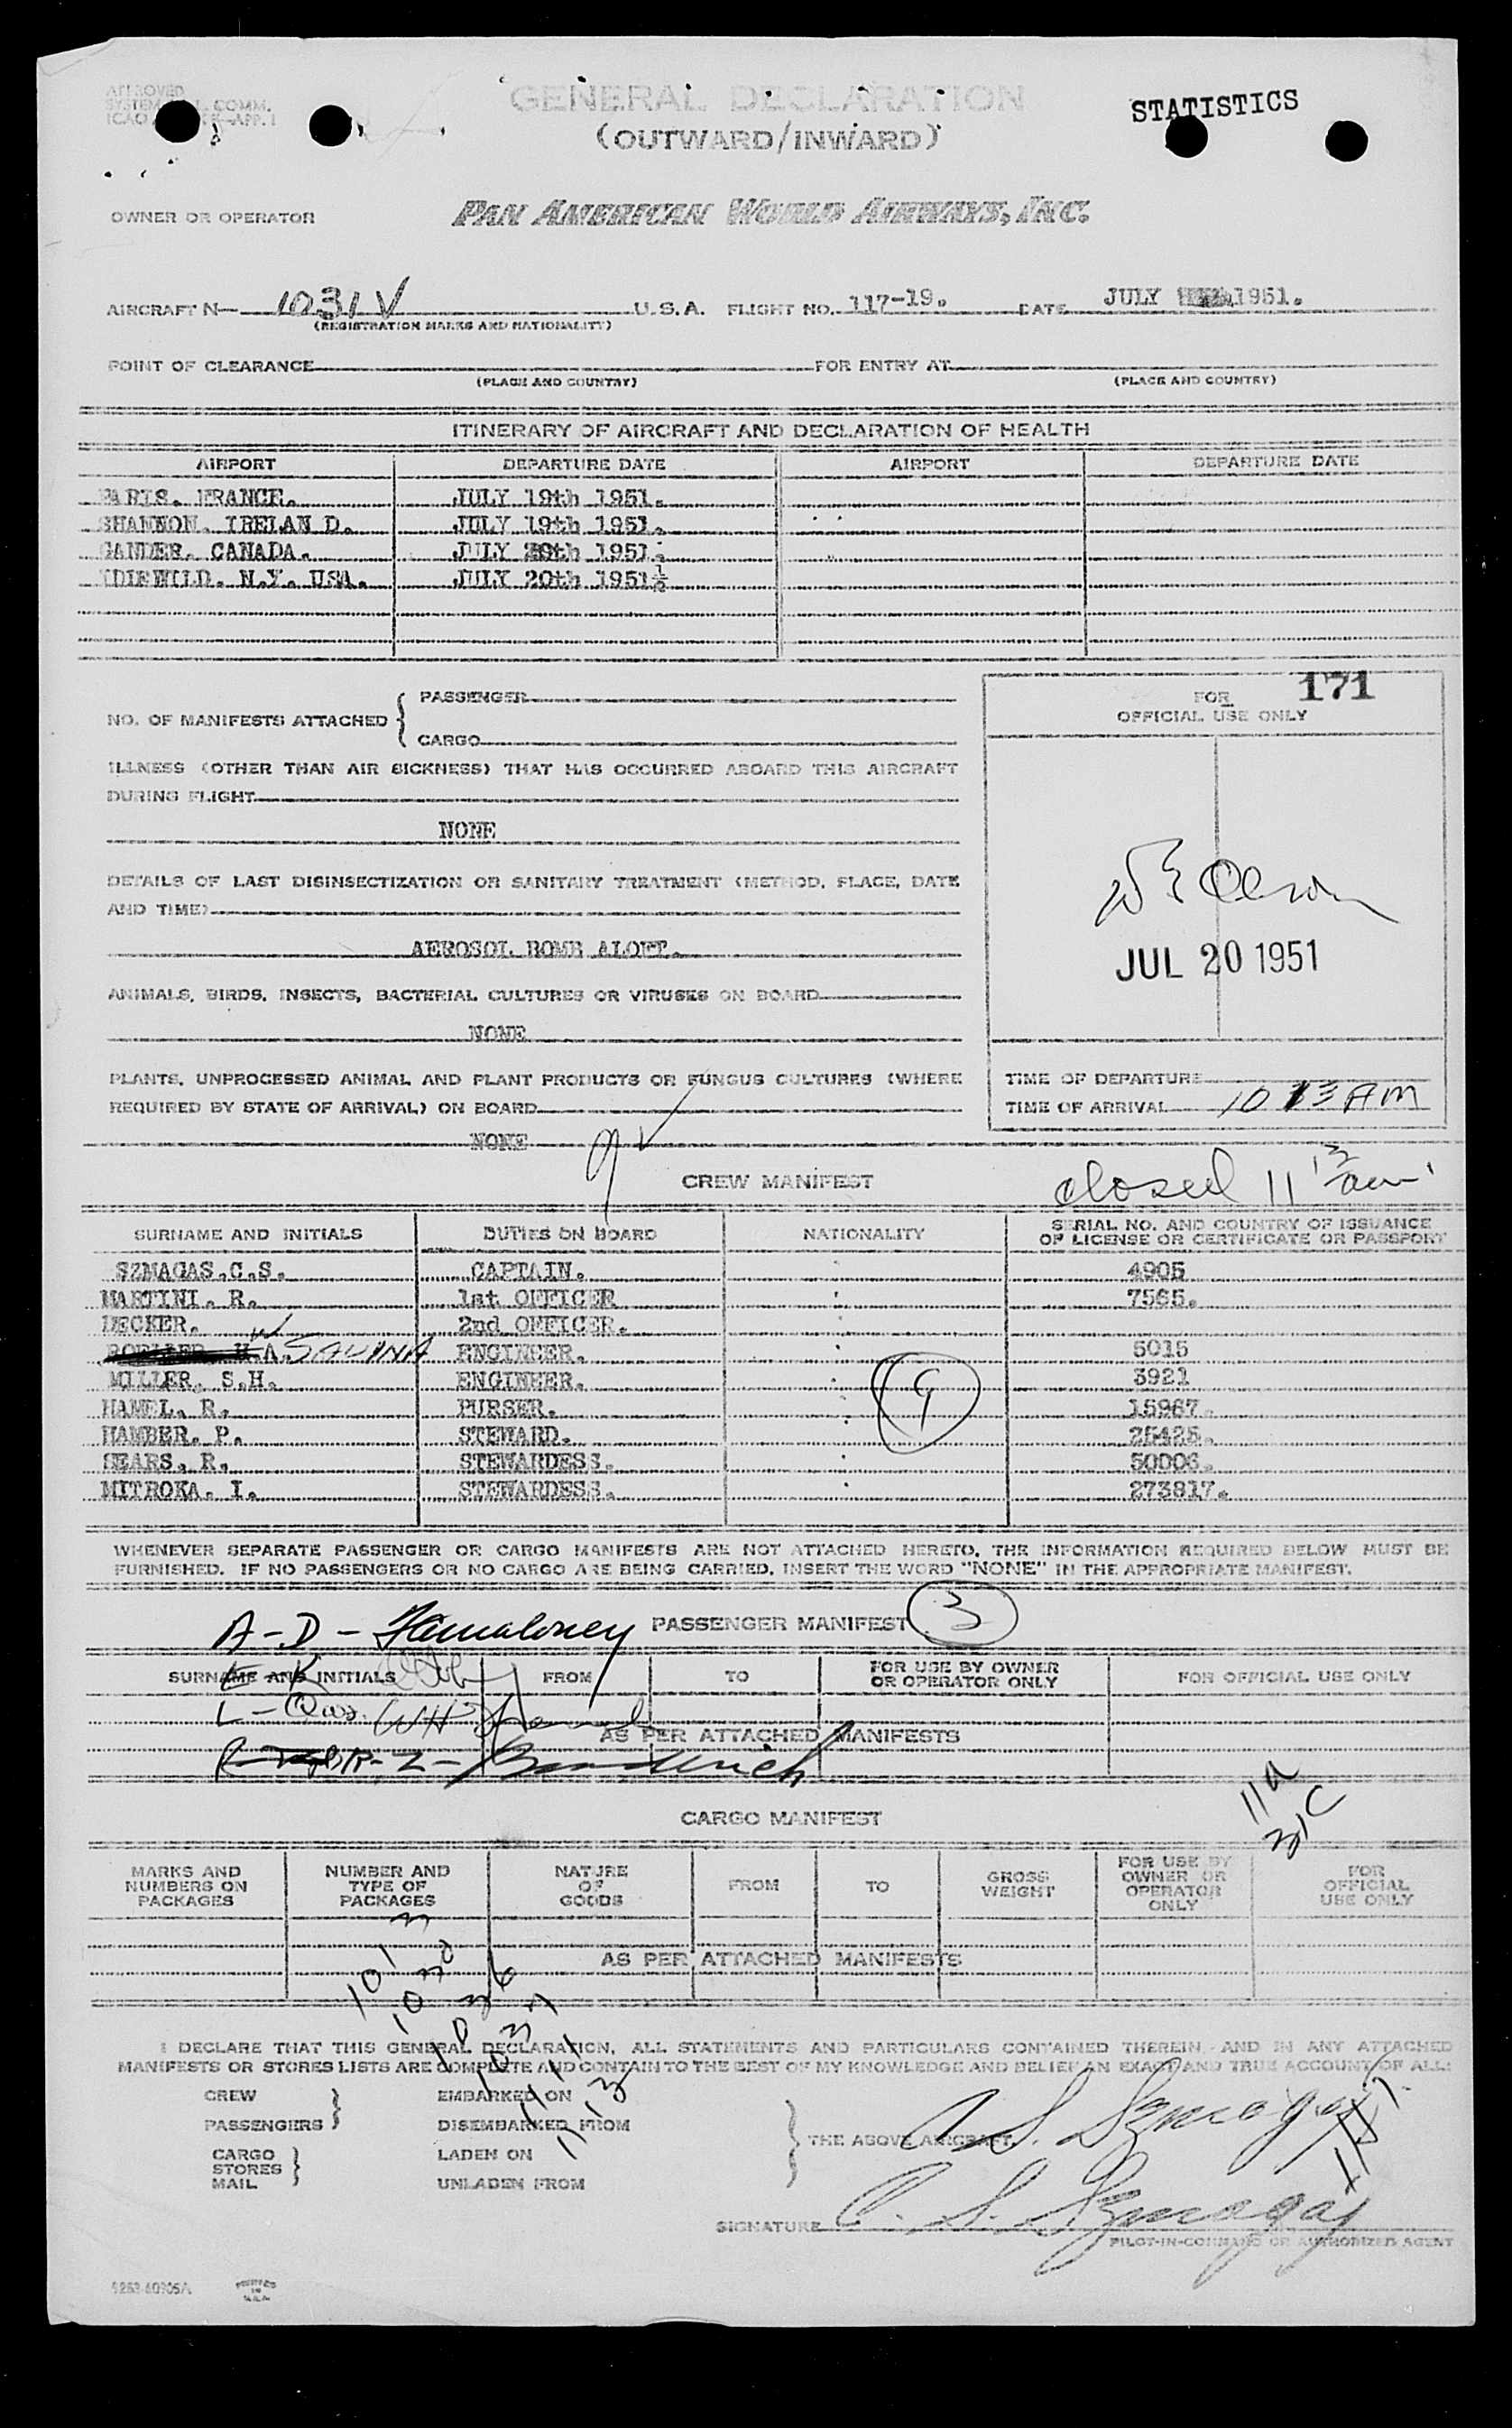 APPROVED
SYSTEM COMM.
ICAO APP. 1
GENERAL DECLARATION
STATISTICS
(OUTWARD/INWARD)
OWNER OR OPERATOR PAN AMERICAN WORLD AIRWAYS, INC.
AIRCRAFT N— 1031V U.S.A. FLIGHT NO. 117-19. DATE JULY 1951.
(REGISTRATION MARKS AND NATIONALITY)
POINT OF CLEARANCE FOR ENTRY AT
(PLACE AND COUNTRY) (PLACE AND COUNTRY)
ITINERARY OF AIRCRAFT AND DECLARATION OF HEALTH
AIRPORT DEPARTURE DATE AIRPORT DEPARTURE DATE
PARIS. FRANCE. JULY 19th 1951.
SHANNON. IRELAN D. JULY 19th 1951.
GANDER. CANADA. JULY 20th 1951.
IDIEWILD. N.Y. USA. JULY 20th 1951½
NO. OF MANIFESTS ATTACHED { PASSENGER
CARGO
FOR 171
OFFICIAL USE ONLY
ILLNESS (OTHER THAN AIR SICKNESS) THAT HAS OCCURRED ABOARD THIS AIRCRAFT
DURING FLIGHT
NONE
DETAILS OF LAST DISINSECTIZATION OR SANITARY TREATMENT (METHOD, PLACE, DATE
AND TIME)
AEROSOL BOMB ALOFT.
Olson
JUL 20 1951
ANIMALS, BIRDS, INSECTS, BACTERIAL CULTURES OR VIRUSES ON BOARD
NONE
PLANTS, UNPROCESSED ANIMAL AND PLANT PRODUCTS OR FUNGUS CULTURES (WHERE
REQUIRED BY STATE OF ARRIVAL) ON BOARD
NONE
TIME OF DEPARTURE
TIME OF ARRIVAL 10 13 AM
CREW MANIFEST closed 11 13 am
SURNAME AND INITIALS DUTIES ON BOARD NATIONALITY SERIAL NO. AND COUNTRY OF ISSUANCE
OF LICENSE OR CERTIFICATE OR PASSPORT
SZMAGAS.C.S. CAPTAIN. 4905
MARTINI. R. 1st OFFICER 7565.
DECKER. 2nd OFFICER.
W SAVINA ENGINEER. 5015
MILLER. S.H. ENGINEER. 3921
HAMEL. R. PURSER. 15967.
HAMBER. P. STEWARD. 25425.
SEARS. R. STEWARDESS. 50006.
MITROKA. I. STEWARDESS. 273817.
9
WHENEVER SEPARATE PASSENGER OR CARGO MANIFESTS ARE NOT ATTACHED HERETO, THE INFORMATION REQUIRED BELOW MUST BE
FURNISHED. IF NO PASSENGERS OR NO CARGO ARE BEING CARRIED, INSERT THE WORD "NONE" IN THE APPROPRIATE MANIFEST.
A-D- PASSENGER MANIFEST 3
SURNAME AND INITIALS FROM TO FOR USE BY OWNER
OR OPERATOR ONLY FOR OFFICIAL USE ONLY
E-K
L-
AS PER ATTACHED MANIFESTS
R-Z-
11 a
31 c
CARGO MANIFEST
MARKS AND
NUMBERS ON
PACKAGES
NUMBER AND
TYPE OF
PACKAGES
NATURE
OF
GOODS
FROM
TO
GROSS
WEIGHT
FOR USE BY
OWNER OR
OPERATOR
ONLY
FOR
OFFICIAL
USE ONLY
AS PER ATTACHED MANIFESTS
10 13
10 30
10 36
10 37
11 11
11 13
I DECLARE THAT THIS GENERAL DECLARATION, ALL STATEMENTS AND PARTICULARS CONTAINED THEREIN, AND IN ANY ATTACHED
MANIFESTS OR STORES LISTS ARE COMPLETE AND CONTAIN TO THE BEST OF MY KNOWLEDGE AND BELIEF AN EXACT AND TRUE ACCOUNT OF ALL:
CREW
PASSENGERS }
EMBARKED ON
DISEMBARKED FROM
CARGO
STORES
MAIL }
LADEN ON
UNLADEN FROM
} THE ABOVE AIRCRAFT.
C. S. Szmagaj
SIGNATURE C. S. Szmagaj
PILOT-IN-COMMAND OR AUTHORIZED AGENT
PRINTED
IN
U.S.A.